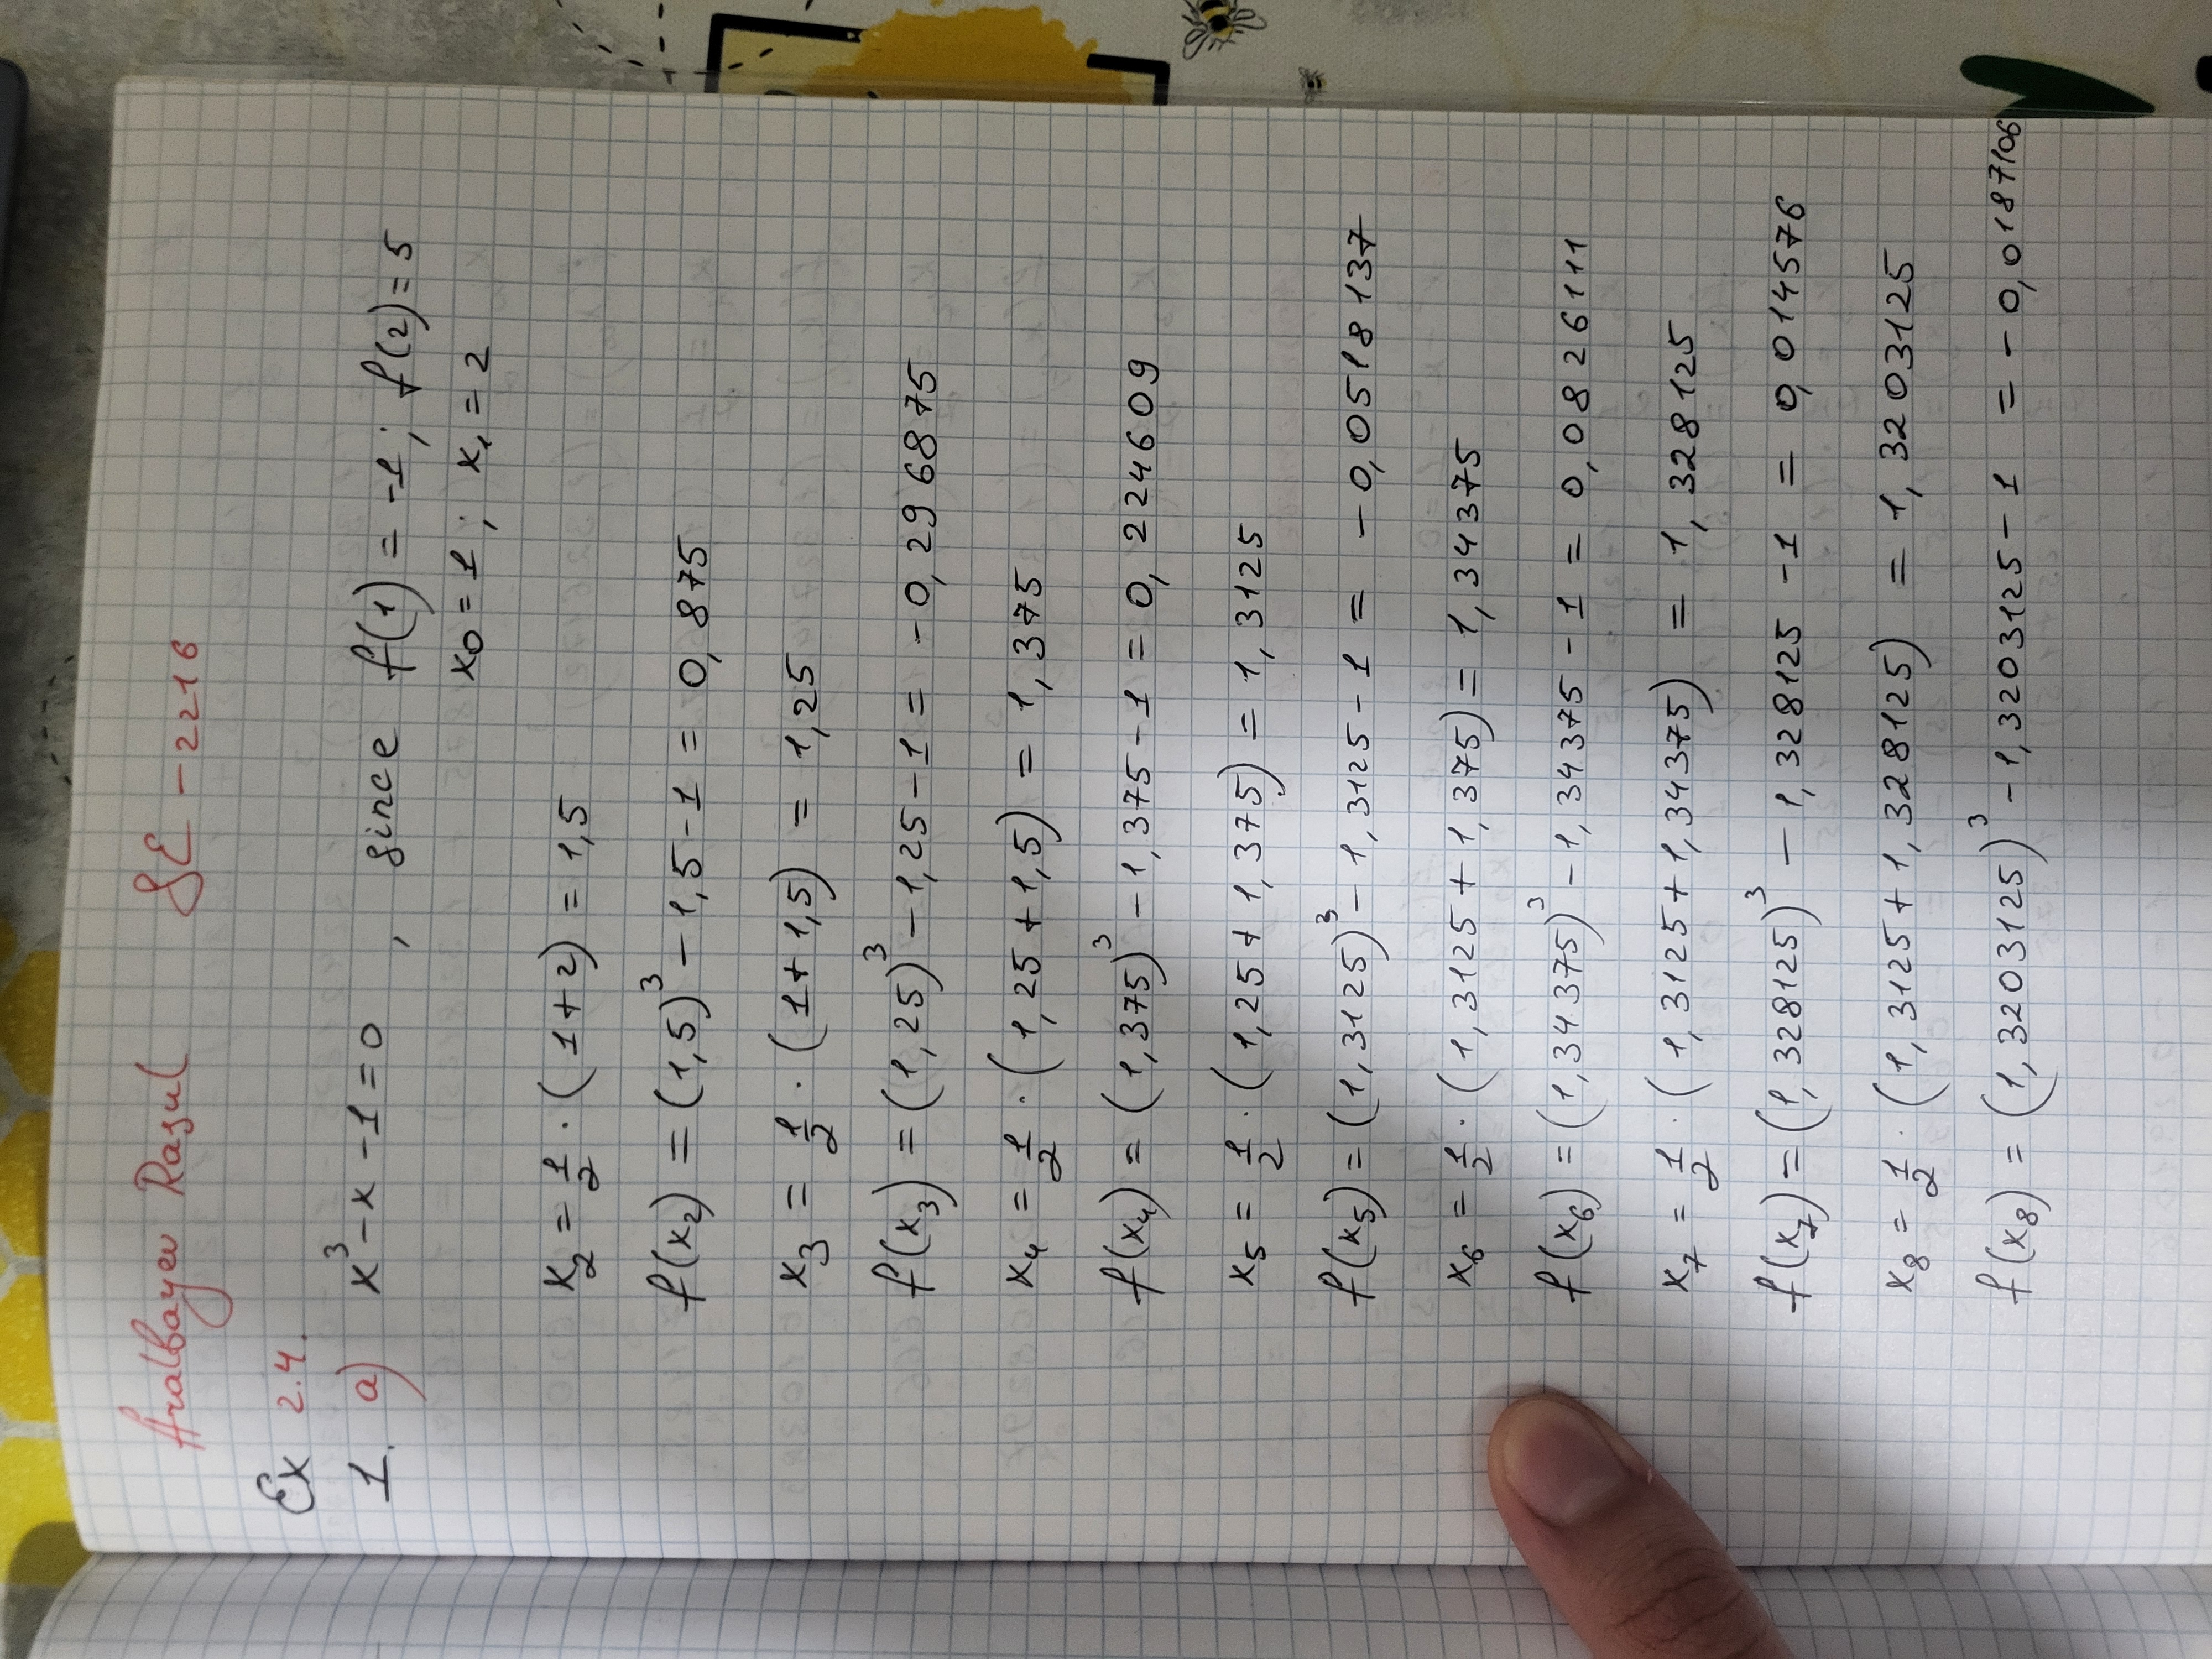 Aralbayev Rasul SE-2216
Ex 2.4.
1. a) x³-x-1=0, since f(1)=-1; f(2)=5
x₀=1; x₁=2
x₂ = 1/2 · (1+2) = 1,5
f(x₂) = (1,5)³ - 1,5 - 1 = 0,875
x₃ = 1/2 · (1+1,5) = 1,25
f(x₃) = (1,25)³ - 1,25 - 1 = -0,296875
x₄ = 1/2 · (1,25+1,5) = 1,375
f(x₄) = (1,375)³ - 1,375 - 1 = 0,224609
x₅ = 1/2 · (1,25+1,375) = 1,3125
f(x₅) = (1,3125)³ - 1,3125 - 1 = -0,0518137
x₆ = 1/2 · (1,3125+1,375) = 1,34375
f(x₆) = (1,34375)³ - 1,34375 - 1 = 0,0826111
x₇ = 1/2 · (1,3125+1,34375) = 1,328125
f(x₇) = (1,328125)³ - 1,328125 - 1 = 0,014576
x₈ = 1/2 · (1,3125+1,328125) = 1,3203125
f(x₈) = (1,3203125)³ - 1,3203125 - 1 = -0,0187106